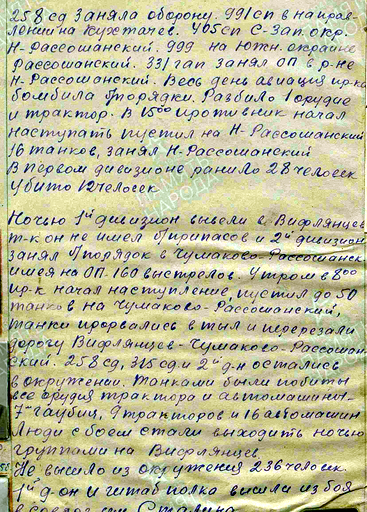 258 сд заняла оборону. 991 сп в направ-
лении на Кухтачев. 405 сп С-Зап. окр.
Н-Рассошанский. 999 на южн. окраине
Рассошанский. 331 гап занял ОП в р-не
Н-Рассошанский. Весь день авиация пр-ка
бомбила б/порядки. Разбило 1 орудие
и трактор. В 15⁰⁰ противник начал
наступать пустил на Н-Рассошанский
16 танков, занял Н-Рассошанский
В первом дивизионе ранило 28 человек
Убито 12 человек
Ночью 1й дивизион вывели в Вифлянцев
т-к он не имел б/припасов и 2й дивизион
занял б/порядок в Чумаково-Рассошанск
имея на ОП 160 выстрелов. Утром в 8⁰⁰
пр-к начал наступление, пустил до 50
танков на Чумаково-Рассошанский,
танки прорвались в тыл и перерезали
дорогу Вифлянцев-Чумаково-Рассошан
ский. 258 сд, 315 сд и 2й д-н остались
в окружении. Танками были побиты
все орудия трактора и автомашины-
7 гаубиц, 9 тракторов и 16 автомашин
Люди с боем стали выходить ночью
группами на Вифлянцев.
Не вышло из окружения 236 человек.
1й д-он и штаб полка вышли из боя
Сталина
ПАМЯТЬ
НАРОДА